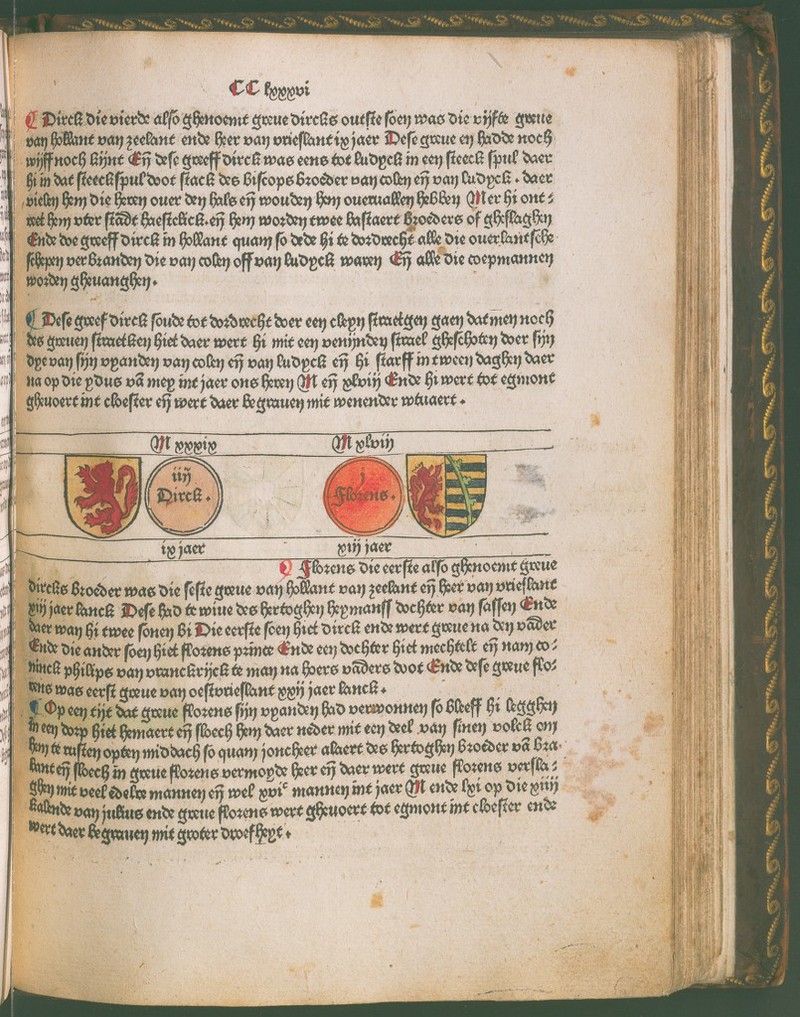 CC lxxxvi
¶ Dirck die vierde also ghenoemt greue dircks outste soen was die vijfte greue
van hollant van zeelant ende heer van vrieslant ix jaer Dese greue en hadde noch
wijff noch kijnt Eñ dese greeff dirck was eens tot ludyck in een steeck spul daer
hi in dat steeckspul doot stack des biscops broeder van colen eñ van ludyck . daer
vielen hem die heren ouer den hals eñ wouden hem oueruallen hebben Mer hi ont⸗
reet hem vter stādt haestelick.eñ hem worden twee bastaert broeders of gheslaghen
Ende doe greeff dirck in hollant quam so dede hi te dordrecht alle die ouerlantsche
schepen verbranden die van colen off van ludyck waren Eñ alle die coepmannen
worden gheuanghen.
¶ Dese greef dirck soude tot dordrecht doer een cleyn straetgen gaen dat men noch
des greuen straetken hiet daer wert hi mit een venijnden strael gheschoten doer sijn
dye van sijn vyanden van colen eñ van ludyck eñ hi starff in tween daghen daer
na op die ydus vā mey int jaer ons heren M eñ xlviij Ende hi wert tot egmont
gheuoert int cloester eñ wert daer begrauen mit wenender wtuaert .
M xxxix M xlviij
iiij Dirck . j Florens .
ix jaer xiij jaer
¶ Florens die eerste also ghenoemt greue
dircks broeder was die seste greue van hollant van zeelant eñ heer van vrieslant
xiij jaer lanck Dese had te wiue des hertoghen heymanss dochter van sassen Ende
daer wan hi twee sonen bi Die eerste soen hiet dirck ende wert greue na den vāder
Ende die ander soen hiet florens prince Ende een dochter hiet mechtelt eñ nam co⸗
ninck philips van vranckrijck te man na hoers vāders doot Ende dese greue flo⸗
rens was eerst greue van oestvrieslant xxij jaer lanck .
¶ Op een tijt dat greue florens sijn vyanden had verwonnen so bleeff hi legghen
in een dorp hiet hemaert eñ sloech hem daer neder mit een deel van sinen volck om
hem te rusten opten middach so quam joncheer alaert des hertoghen broeder vā bra⸗
bant eñ sloech in greue florens vermoyde heer eñ daer wert greue florens versla⸗
ghen mit veel edelre mannen eñ wel xviᶜ mannen int jaer M ende lxi op die xiiij
kalende van julius ende greue florens wert gheuoert tot egmont int cloester ende
wert daer begrauen mit groter droefheyt .